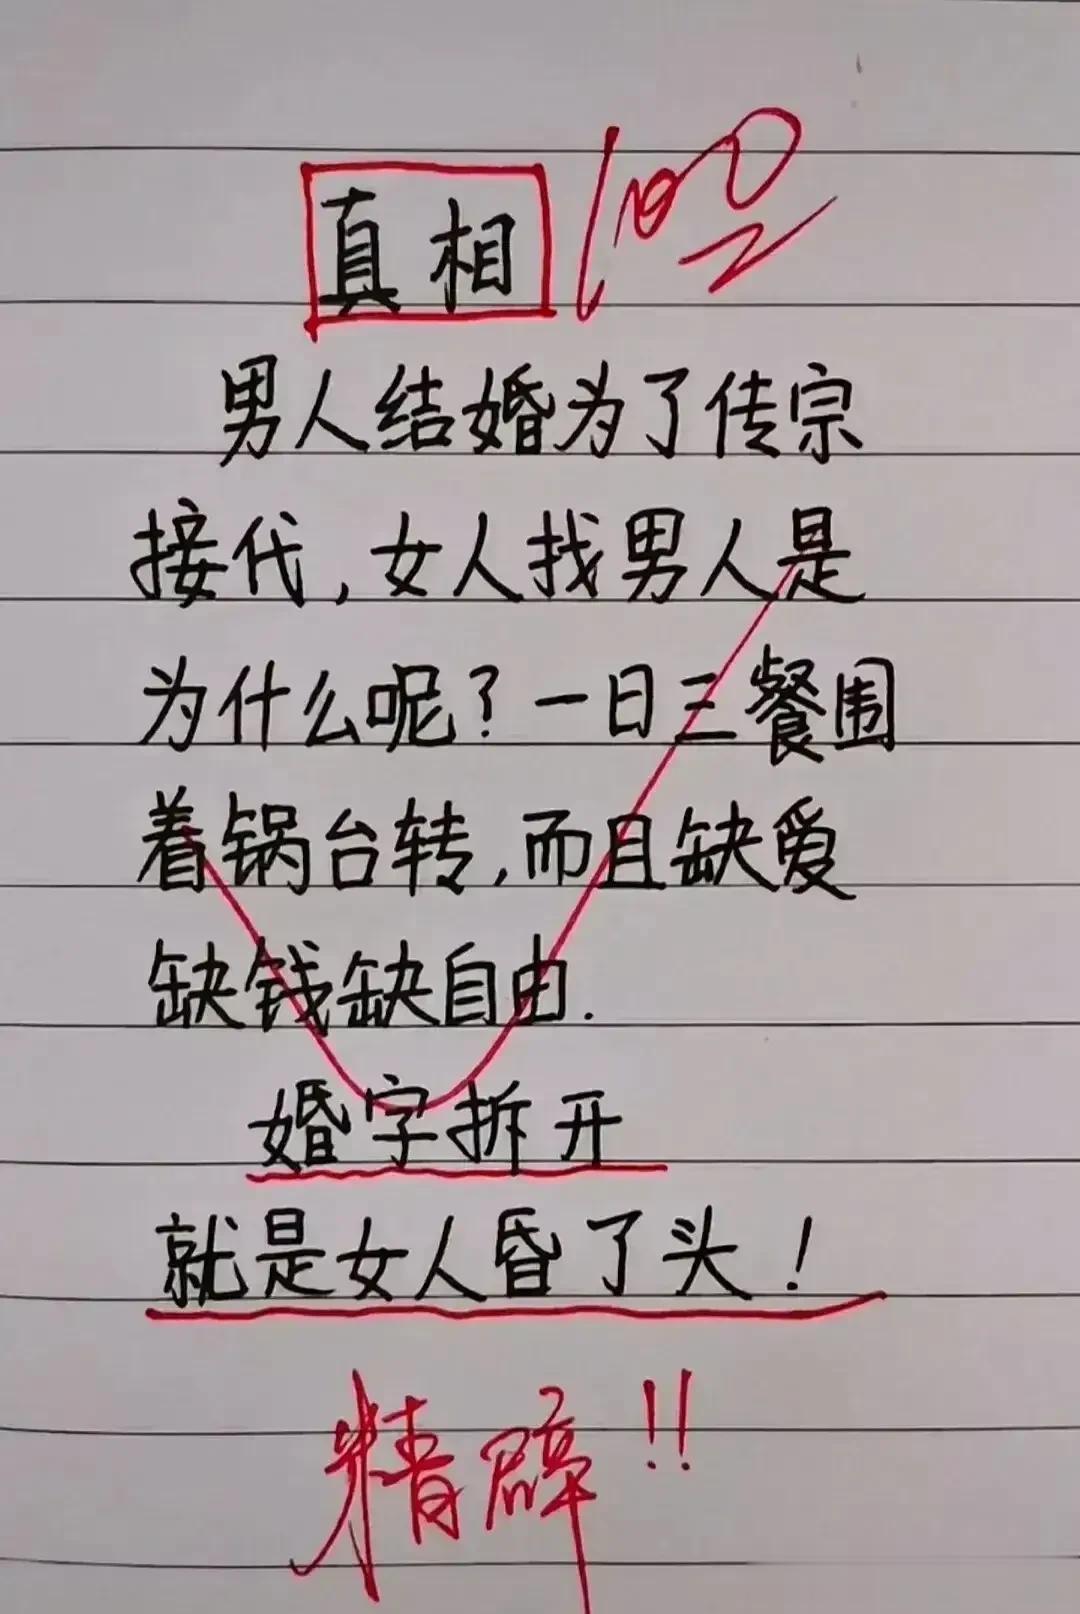 真相 100
男人结婚为了传宗
接代,女人找男人是
为什么呢?一日三餐围
着锅台转,而且缺爱
缺钱缺自由.
婚字拆开
就是女人昏了头!
精辟!!